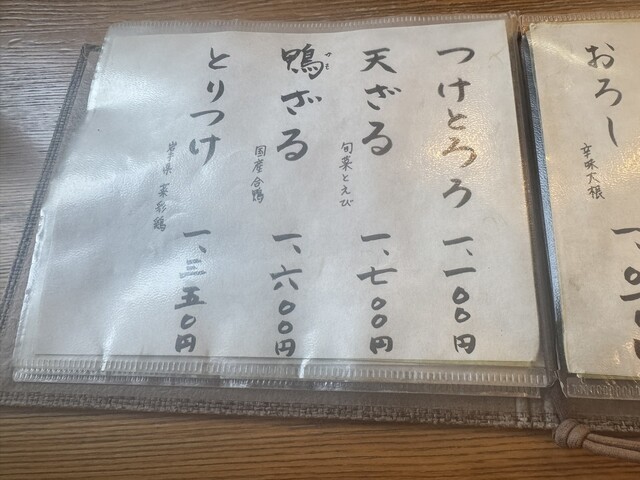 おろし
辛味大根
つけとろろ 一、一〇〇円
天ざる 一、七〇〇円
旬菜とえび
鴨ざる 一、六〇〇円
かも
国産合鴨
とりつけ 一、三五〇円
岩手県 菜彩鶏